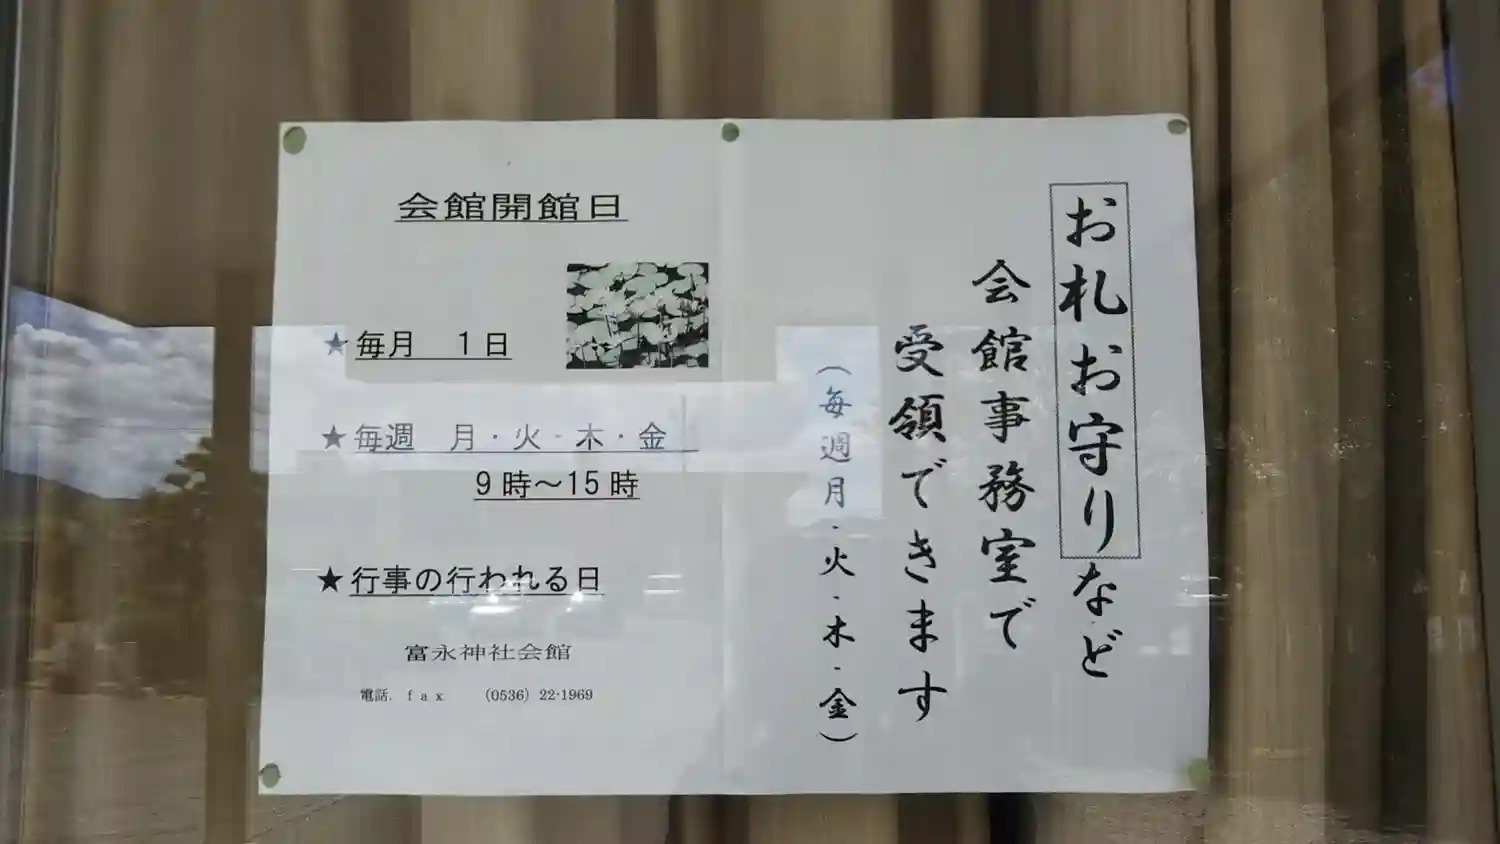 会館開館日
★毎月　1日
★毎週　月・火・木・金
9時～15時
★行事の行われる日
富永神社会館
電話．ｆａｘ　（0536）22-1969
お札お守りなど
会館事務室で
受領できます
（毎週月・火・木・金）